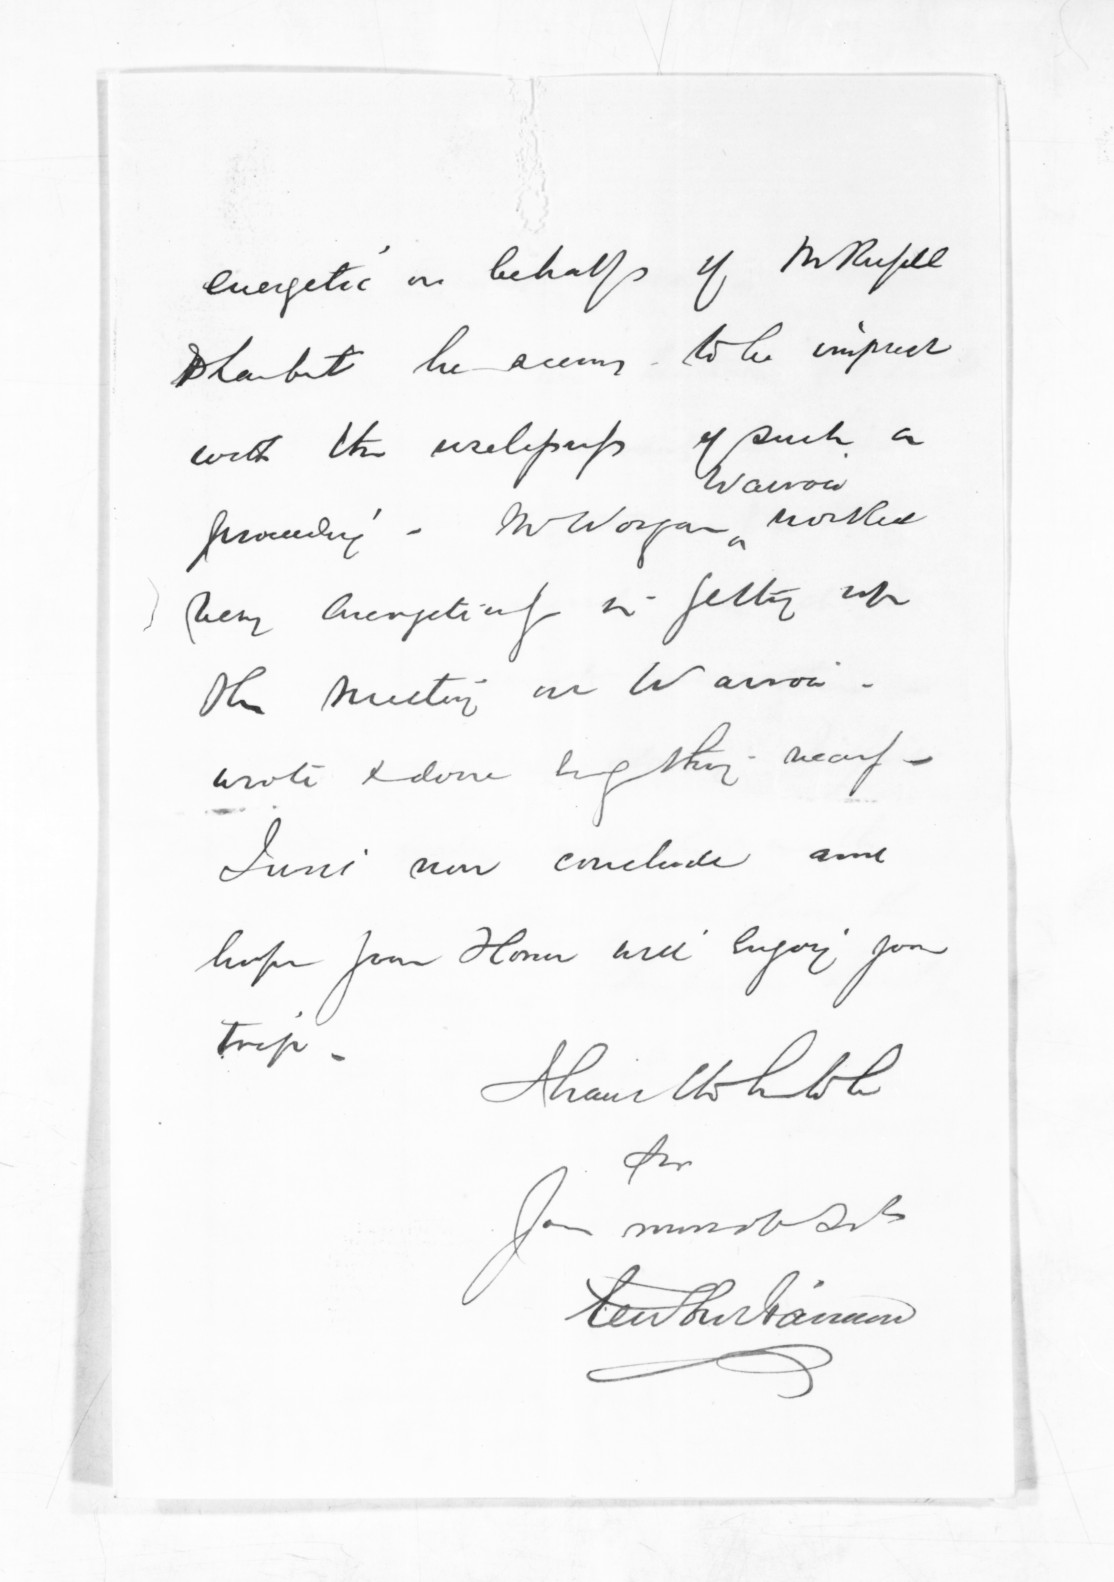 energetic on behalf of Mr Russell
he seems to be imprest
with the uselessness of such a
proceeding - Mr Worgan
Wairoa
worked
very energeticly in getting up
the meeting on Wairoa -
wrote & done nearly -
I must now conclude and
hope your Honor will enjoy your
trip -
I have
Sir
Your most obt Sert